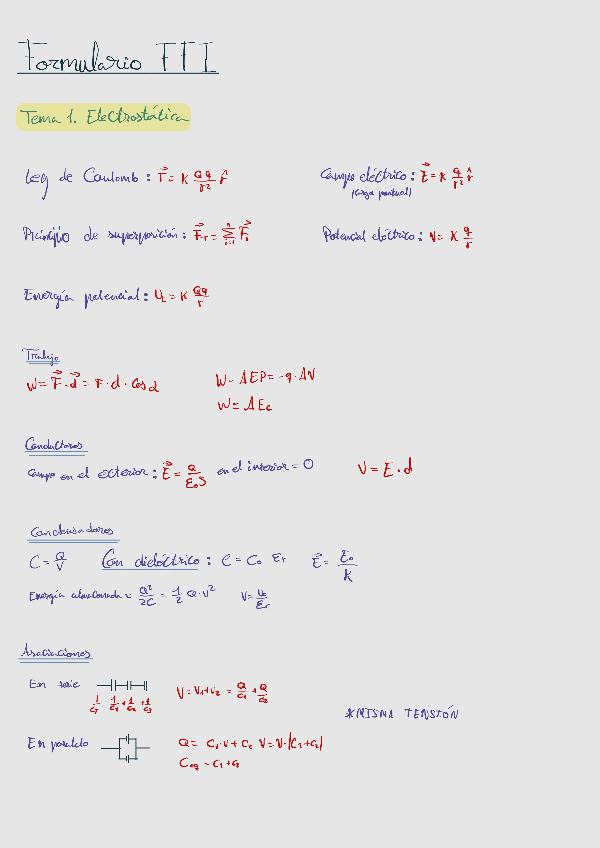 Formulario FFI
Tema 1. Electrostática
Ley de Coulomb: F⃗ = K Qq/r² r̂
Campo eléctrico: E⃗ = K q/r² r̂
(carga puntual)
Principio de superposición: F⃗T = Σ F⃗i
Potencial eléctrico: V = K q/r
Energía potencial: U = K Qq/r
Trabajo
W = F⃗ · d⃗ = F · d · cos α
W = ΔEP = -q · ΔV
W = ΔEc
Conductores
Campo en el exterior: E⃗ = Q/ε₀S en el interior = 0
V = E · d
Condensadores
C = Q/V Con dieléctrico: C = C₀ εr E⃗ = E₀/K
Energía almacenada = Q²/2C = 1/2 Q · V² V = V₀/εr
Asociaciones
En serie
V = V₁+V₂ = Q/C₁ + Q/C₂
1/CT 1/C₁ + 1/C₂ + 1/C₃
*MISMA TENSIÓN
En paralelo
Q = C₁·V + C₂ V = V·(C₁+C₂)
Ceq = C₁+C₂